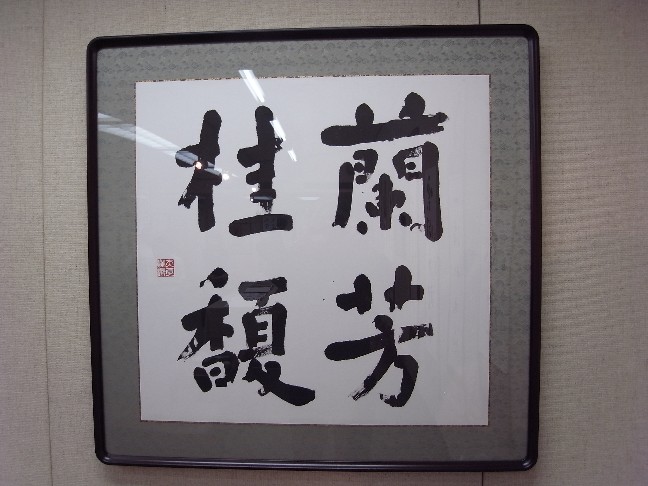 蘭芳
桂馥